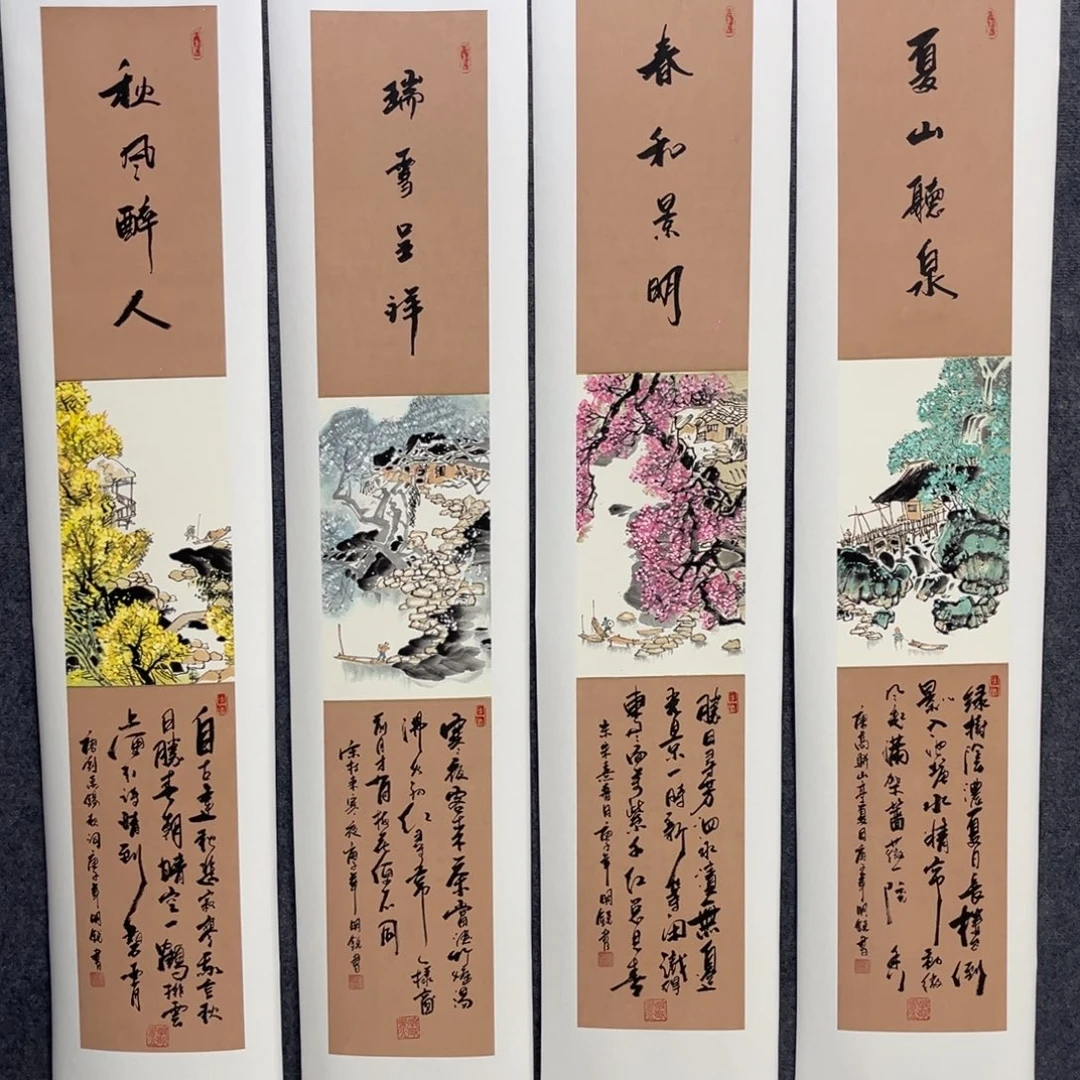 秋风醉人
自古逢秋悲寂寥我言秋
日勝春朝晴空一鶴排雲
上便引詩情到碧霄
劉禹錫秋詞庚子年明銳書
瑞雪呈祥
寒夜客來茶當酒竹爐湯
沸火初红尋常一樣窗
前月才有梅花便不同
宋杜耒寒夜庚子年明銳書
春和景明
勝日尋芳泗水濱無邊
光景一時新等闲識得
東风面萬紫千红总是春
宋朱熹春日庚子年明銳書
夏山聽泉
緑樹陰濃夏日長樓台倒
影入池塘水精帘動微
风起滿架薔薇一院香
唐高駢山亭夏日庚子年明銳書